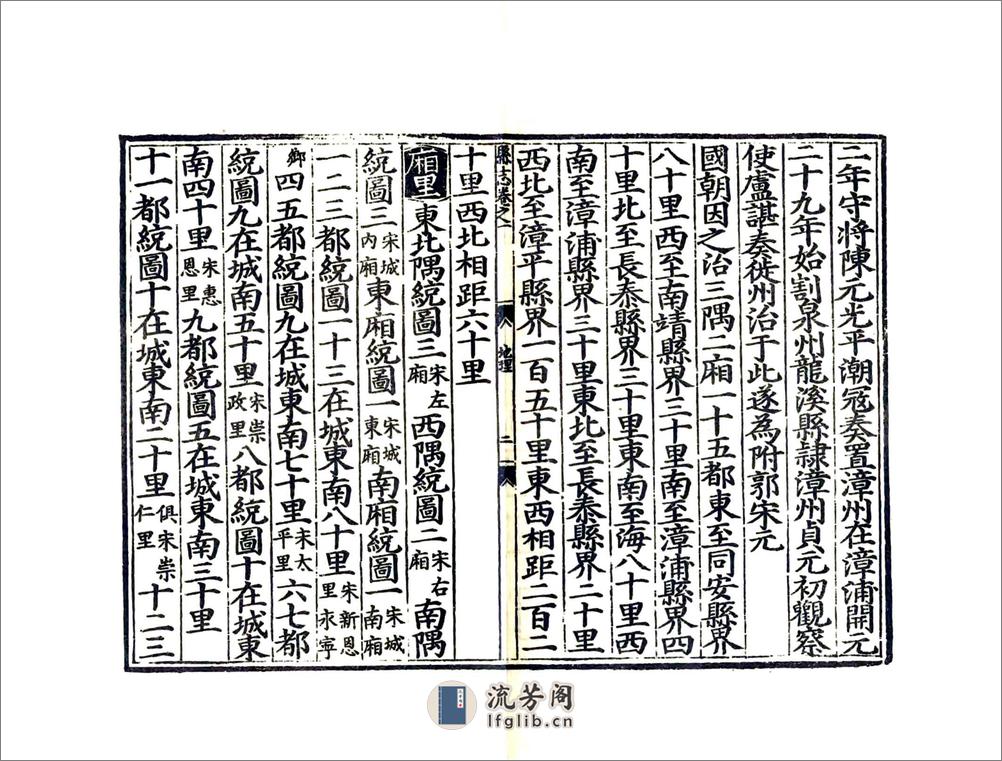 二年守將陳元光平潮冦奏置漳州在漳浦開元
二十九年始割泉州龍溪縣隷漳州貞元初觀察
使盧諶奏徙州治于此遂為附郭宋元
國朝因之治三隅二廂一十五都東至同安縣界
八十里西至南靖縣界三十里南至漳浦縣界四
十里北至長泰縣界三十里東南至海八十里西
南至漳浦縣界三十里東北至長泰縣界二十里
西北至漳平縣界一百五十里東西相距二百二
縣志卷之一 地理 二
十里西北相距六十里
廂里 東北隅統圖三宋左廂西隅統圖二宋右廂南隅
統圖三宋城內廂東廂統圖一宋城東廂南廂統圖一宋城南廂
一二三都統圖一十三在城東南八十里宋新恩里永寧
鄉四五都統圖九在城東南七十里宋太平里六七都
統圖九在城南五十里宋崇政里八都統圖十在城東
南四十里宋惠恩里九都統圖五在城東南三十里
十一都統圖十在城東南二十里俱宋崇仁里十二三
流芳阁
lfglib.cn